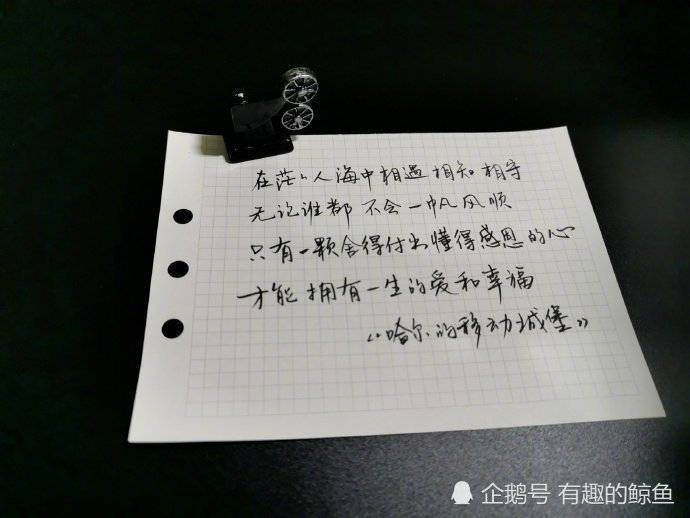 在茫々人海中相遇相知相守
无论谁都不会一帆风顺
只有一颗舍得付出懂得感恩的心
才能拥有一生的爱和幸福
《哈尔的移动城堡》
企鹅号 有趣的鲸鱼